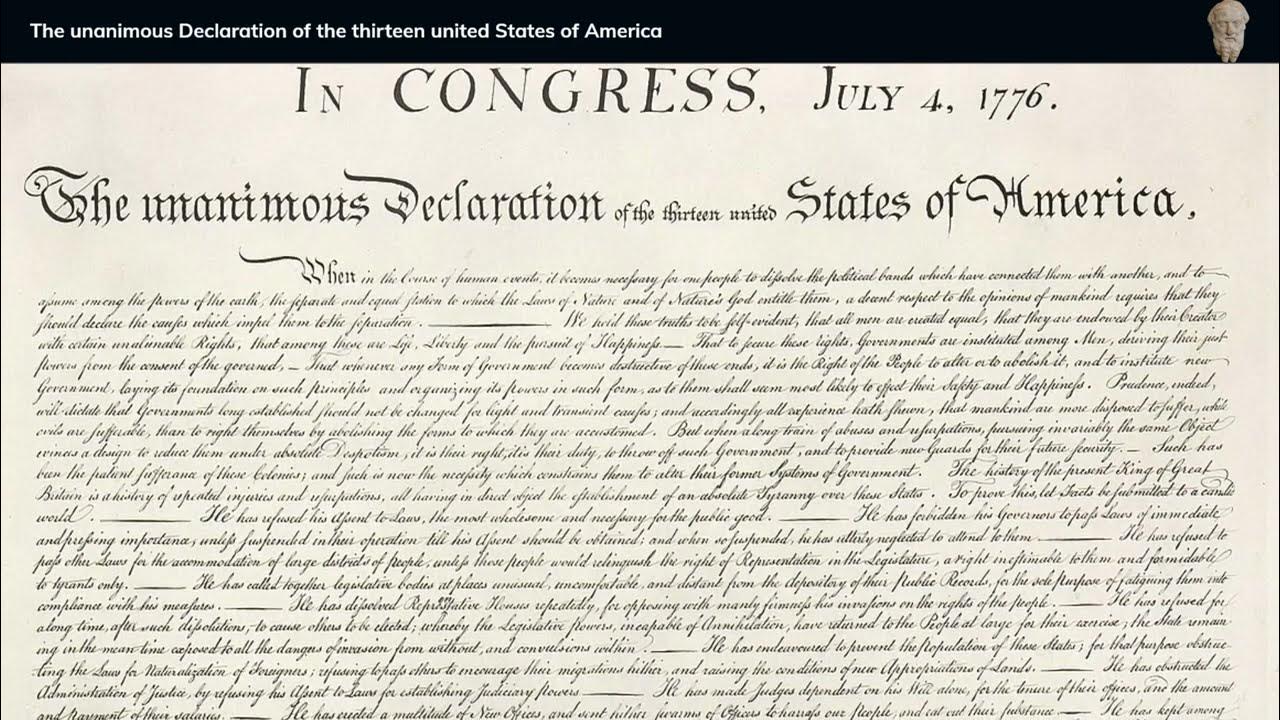 The unanimous Declaration of the thirteen united States of America
IN CONGRESS, JULY 4, 1776.
The unanimous Declaration of the thirteen united States of America,
When in the Course of human events, it becomes necessary for one people to dissolve the political bands which have connected them with another, and to
assume among the powers of the earth, the separate and equal station to which the Laws of Nature and of Nature's God entitle them, a decent respect to the opinions of mankind requires that they
should declare the causes which impel them to the separation. ——— We hold these truths to be self-evident, that all men are created equal, that they are endowed by their Creator
with certain unalienable Rights, that among these are Life, Liberty and the pursuit of Happiness.— That to secure these rights, Governments are instituted among Men, deriving their just
powers from the consent of the governed, — That whenever any Form of Government becomes destructive of these ends, it is the Right of the People to alter or to abolish it, and to institute new
Government, laying its foundation on such principles and organizing its powers in such form, as to them shall seem most likely to effect their Safety and Happiness. Prudence, indeed,
will dictate that Governments long established should not be changed for light and transient causes; and accordingly all experience hath shewn, that mankind are more disposed to suffer, while
evils are sufferable, than to right themselves by abolishing the forms to which they are accustomed. But when a long train of abuses and usurpations, pursuing invariably the same Object
evinces a design to reduce them under absolute Despotism, it is their right, it is their duty, to throw off such Government, and to provide new Guards for their future security. — Such has
been the patient sufferance of these Colonies; and such is now the necessity which constrains them to alter their former Systems of Government. The history of the present King of Great
Britain is a history of repeated injuries and usurpations, all having in direct object the establishment of an absolute Tyranny over these States. To prove this, let Facts be submitted to a candid
world. ——— He has refused his Assent to Laws, the most wholesome and necessary for the public good. ——— He has forbidden his Governors to pass Laws of immediate
and pressing importance, unless suspended in their operation till his Assent should be obtained; and when so suspended, he has utterly neglected to attend to them. ——— He has refused to
pass other Laws for the accommodation of large districts of people, unless those people would relinquish the right of Representation in the Legislature, a right inestimable to them and formidable
to tyrants only. ——— He has called together legislative bodies at places unusual, uncomfortable, and distant from the depository of their Public Records, for the sole purpose of fatiguing them into
compliance with his measures. ——— He has dissolved Representative Houses repeatedly, for opposing with manly firmness his invasions on the rights of the people. ——— He has refused for
a long time, after such dissolutions, to cause others to be elected; whereby the Legislative powers, incapable of Annihilation, have returned to the People at large for their exercise; the State remain
ing in the mean time exposed to all the dangers of invasion from without, and convulsions within. ——— He has endeavoured to prevent the population of these States; for that purpose obstruc
ting the Laws for Naturalization of Foreigners; refusing to pass others to encourage their migrations hither, and raising the conditions of new Appropriations of Lands. ——— He has obstructed the
Administration of Justice, by refusing his Assent to Laws for establishing Judiciary powers ——— He has made Judges dependent on his Will alone, for the tenure of their offices, and the amount
and payment of their salaries. ——— He has erected a multitude of New Offices, and sent hither swarms of Officers to harrass our People, and eat out their substance. ——— He has kept among